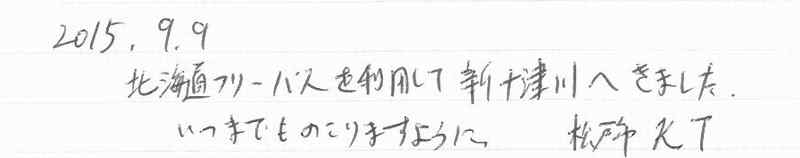 2015. 9. 9
北海道フリーパスを利用して新十津川へきました.
いつまでものこりますように、 松戸市 KT